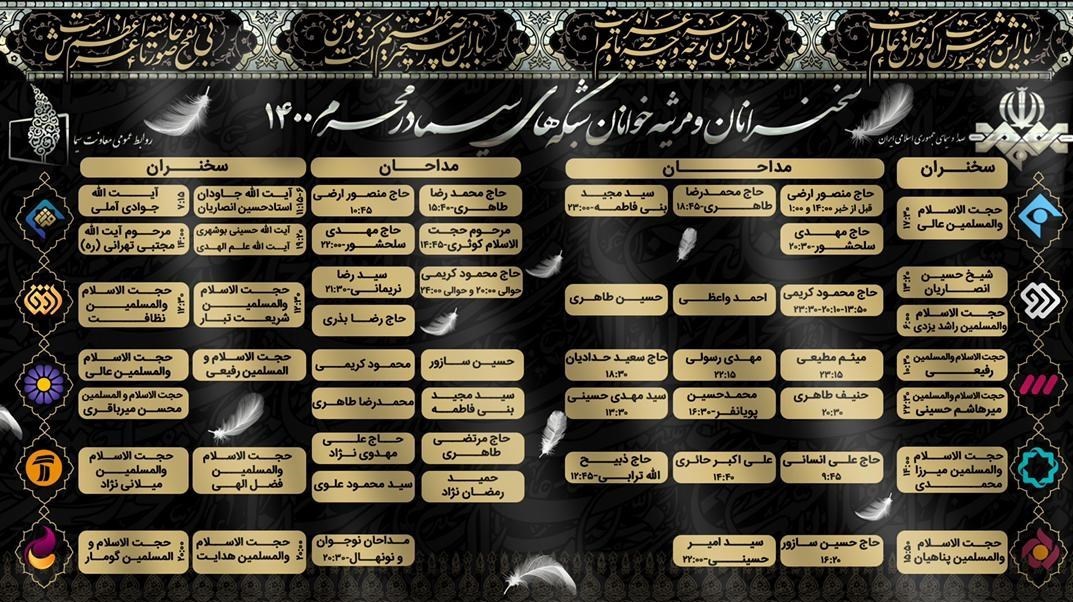 باز این چه شورش است که در خلق عالم است
باز این چه نوحه و چه عزا و چه ماتم است
باز این چه رستخیز عظیم است کز زمین
بی نفخ صور خاسته تا عرش اعظم است
سخنرانان و مرثیه خوانان شبکه های سیما در محرم ۱۴۰۰
صدا و سیمای جمهوری اسلامی ایران
روابط عمومی معاونت سیما
سخنران
مداحان
حجت الاسلام
والمسلمین عالی
۱۷:۳۰
حاج منصور ارضی
قبل از خبر ۱۴:۰۰ و ۱:۰۰
حاج محمدرضا
طاهری-۱۸:۴۵
سید مجید
بنی فاطمه-۲۳:۰۰
حاج مهدی
سلحشور-۲۰:۳۰
شیخ حسین
انصاریان
۱۳:۲۰
حجت الاسلام
والمسلمین راشد یزدی
۶:۰۰
حاج محمود کریمی
۱۳:۵۰-۲۰:۱۰-۲۳:۳۰
احمد واعظی
حسین طاهری
حجت الاسلام والمسلمین
رفیعی
۱۰:۳۰
حجت الاسلام والمسلمین
میرهاشم حسینی
۲۲:۳۰
میثم مطیعی
۲۳:۱۵
مهدی رسولی
۲۲:۱۵
حاج سعید حدادیان
۱۸:۳۰
حنیف طاهری
۲۰:۳۰
محمدحسین
پویانفر-۱۶:۳۰
سید مهدی حسینی
۱۳:۳۰
حجت الاسلام
والمسلمین میرزا
محمدی
۱۴:۰۰
حاج علی انسانی
۹:۴۵
علی اکبر حائری
۱۴:۴۰
حاج ذبیح
الله ترابی-۱۲:۴۵
حجت الاسلام
والمسلمین پناهیان
۱۵:۵۰
حاج حسین سازور
۱۶:۲۰
سید امیر
حسینی-۲۲:۰۰
مداحان
سخنران
حاج محمد رضا
طاهری-۱۵:۴۰
حاج منصور ارضی
۱۰:۴۵
آیت الله جاودان
استادحسین انصاریان
۶-۱۱:۱۵
آیت الله
جوادی آملی
۷:۱۵
مرحوم حجت
الاسلام کوثری-۱۴:۴۵
حاج مهدی
سلحشور-۲۲:۰۰
آیت الله حسینی بوشهری
آیت الله علم الهدی
۱۹:۲۰
مرحوم آیت الله
مجتبی تهرانی (ره)
۱۴:۰۰
حاج محمود کریمی
حوالی ۲۰:۰۰ و حوالی ۲۴:۰۰
سید رضا
نریمانی-۲۱:۳۰
حاج رضا بذری
حجت الاسلام
والمسلمین
شریعت تبار
۱۲:۳۰
حجت الاسلام
والمسلمین
نظافت
۱۲:۳۰
حسین سازور
محمود کریمی
حجت الاسلام و
المسلمین رفیعی
حجت الاسلام
والمسلمین عالی
سید مجید
بنی فاطمه
محمدرضا طاهری
حجت الاسلام و المسلمین
محسن میرباقری
حاج مرتضی
طاهری
حاج علی
مهدوی نژاد
حجت الاسلام
والمسلمین
فضل الهی
حجت الاسلام
والمسلمین
میلانی نژاد
حمید
رمضان نژاد
سید محمود علوی
مداحان نوجوان
و نونهال-۲۰:۳۰
حجت الاسلام
والمسلمین هدایت
۲۰:۰۰
حجت الاسلام و
المسلمین گومار
۲۰:۰۰